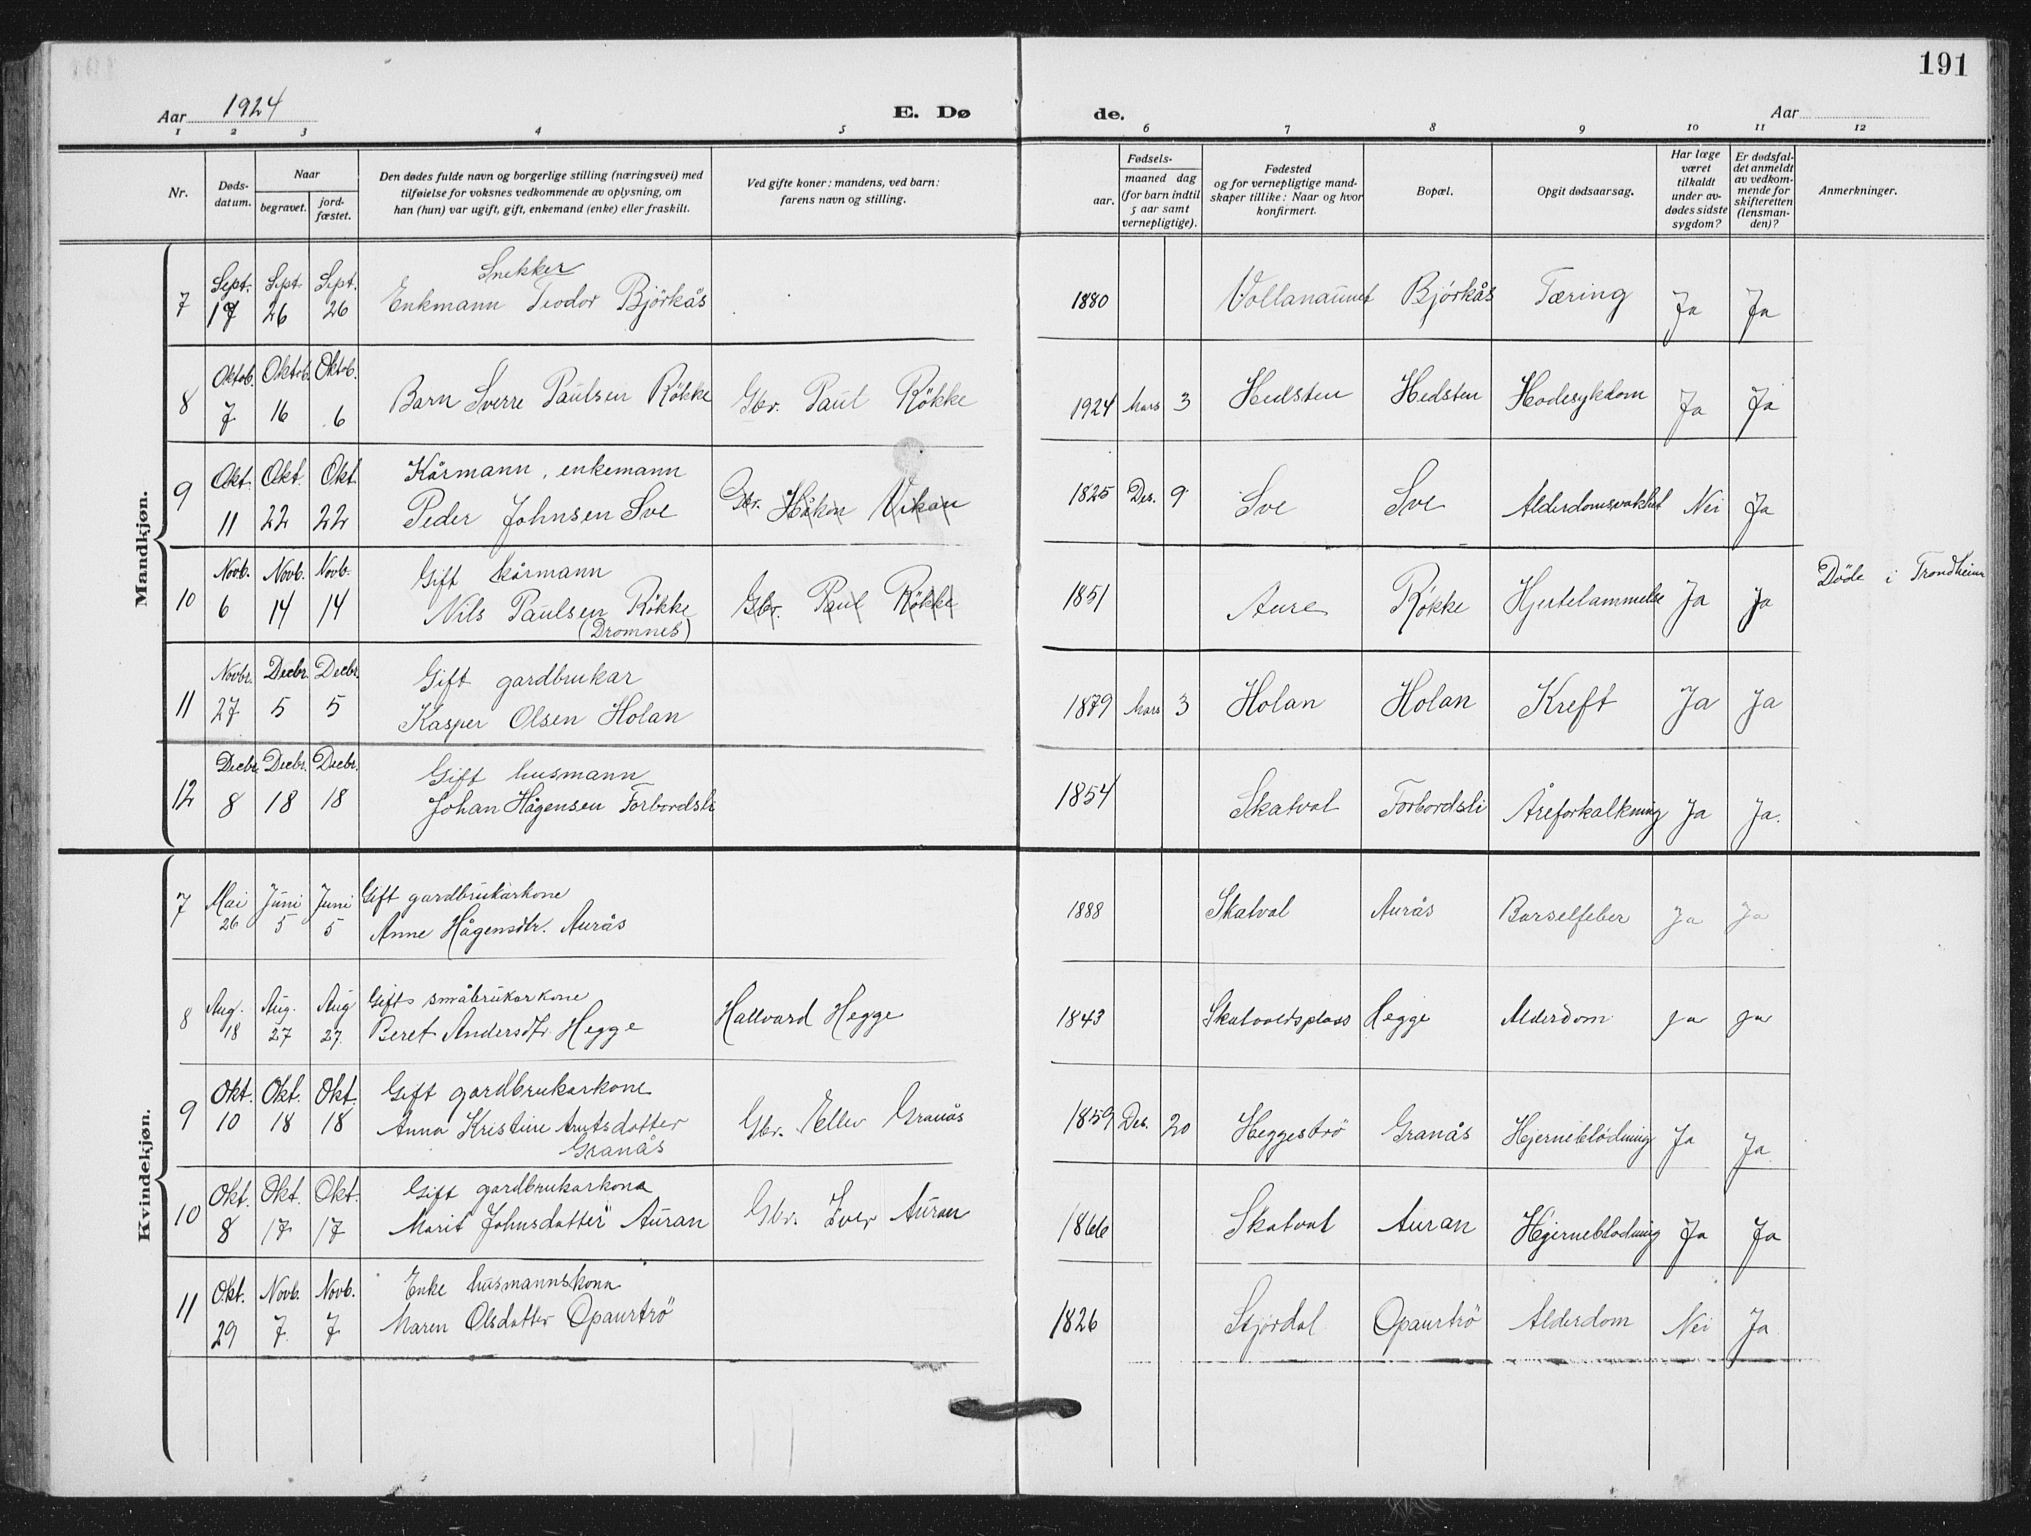 191
Aar 1924 E. Dø de. Aar
1 2 3 4 5 6 7 8 9 10 11 12
Nr. Døds-datum. Naar begravet. jord-fæstet. Den dødes fulde navn og borgerlige stilling (næringsvei) med tilføielse for voksnes vedkommende av oplysning, om han (hun) var ugift, gift, enkemand (enke) eller fraskilt. Ved gifte koner: mandens, ved barn: farens navn og stilling. Fødsels- aar. maaned dag (for barn indtil 5 aar samt vernepligtige). Fødested og for vernepligtige mand-skaper tillike: Naar og hvor konfirmert. Bopæl. Opgit dødsaarsag. Har læge været tilkaldt under av-dødes sidste sygdom? Er dødsfal-det anmeldt av vedkom-mende for skifteretten (lensman-den)? Anmerkninger.
Mandkjøn.
7 Sept. 17 Sept 26 Sept. 26 Snekker Enkmann Teodor Björkås 1880 Vollanaunet Björkås Tæring Ja Ja
8 Oktob. 7 Oktob. 16 Oktob. 6 Barn Sverre Paulsen Rökke Gbr. Paul Rökke 1924 Mars 3 Hedsten Hedsten Hodesykdom Ja Ja
9 Okt. 11 Okt. 22 Okt. 22 Kårmann, enkemann Peder Johnsen Sve Gbr. Håkon Vikan 1825 Des. 9 Sve Sve Alderdomsvakhet Nei Ja
10 Novb. 6 Novb. 14 Novb. 14 Gift kårmann Nils Paulsen Rökke (Dromnes) Gbr. Paul Rökke 1851 Aure Rökke Hjertelammelse Ja Ja Döde i Trondheim
11 Novbr. 27 Decbr. 5 Decbr. 5 Gift gardbrukar Kasper Olsen Holan 1879 Mars 3 Holan Holan Kreft Ja Ja
12 Decbr. 8 Decbr. 18 Decbr. 18 Gift husmann Johan Hågensen Forbordsli 1854 Skatval Forbordsli Åreforkalkning Ja Ja.
Kvindekjøn.
7 Mai 26 Juni 5 Juni 5 Gift gardbrukarkone Anne Hågensdtr. Aurås 1888 Skatval Aurås Barselfeber Ja Ja
8 Aug. 18 Aug. 27 Aug 27. Gift småbrukarkone Beret Andersdtr Hegge Hallvard Hegge 1843 Skatvaldsplass Hegge Alderdom ja ja
9 Okt. 10 Okt. 18 Okt. 18 Gift gardbrukarkone Anna Kristine Arntsdotter Granås Gbr. Ellev Granås 1859 Des. 20 Heggeströ Granås Hjerneblödning Ja Ja.
10 Okt. 8 Okt. 17 Okt. 17 Gift gardbrukarkona Marit Johnsdotter Auran Gbr. Iver Auran 1866 Skatval Auran Hjerneblödning Ja Ja
11 Okt. 29 Novb. 7. Novb. 7 Enke husmannskona Maren Olsdotter Opaurtrö 1826 Stjördal Opaurtrö Alderdom Nei Ja